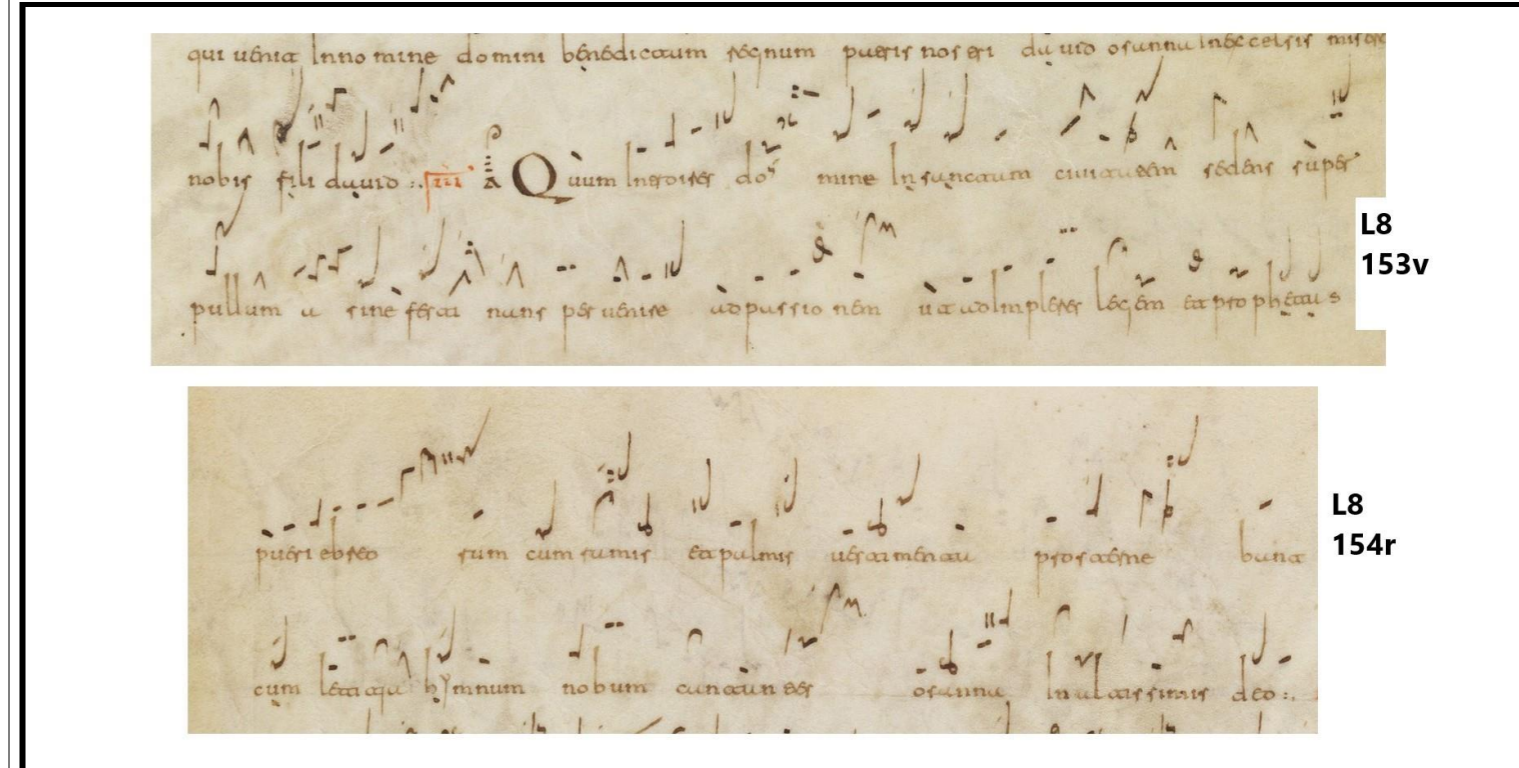 qui uenit In nomine domini benedictum regnum patris nostri dauid osanna In excelsis misere
nobis fili dauid :. IIII Quum Introires domine In sanctam ciuitatem sedens super
pullum asine festinans peruenire ad passionem ut adImpleres legem et prophetas
L8
153v
pueri ebreorum cum ramis et palmis uestimenta prosternebant
cum letitia hymnum nobum cantantes osanna In altissimis deo :.
L8
154r